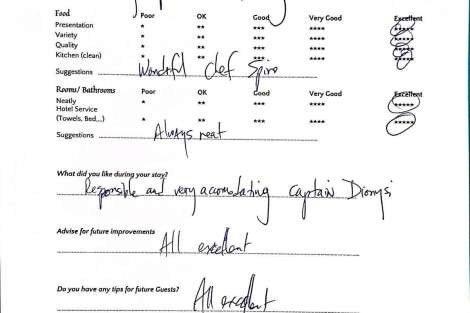 Food Poor OK Good Very Good Excellent
Presentation * ** *** **** *****
Variety * ** *** **** *****
Quality * ** *** **** *****
Kitchen (clean) * ** *** **** *****
Suggestions Wonderful clef Spiro
Rooms/ Bathrooms Poor OK Good Very Good Excellent
Neatly * ** *** **** *****
Hotel Service
(Towels, Bed,,,) * ** *** **** *****
Suggestions Always neat
What did you like during your stay?
Responsible and very accomodating captain Dionysi
Advise for future improvements
All excellent
Do you have any tips for future Guests? All excellent